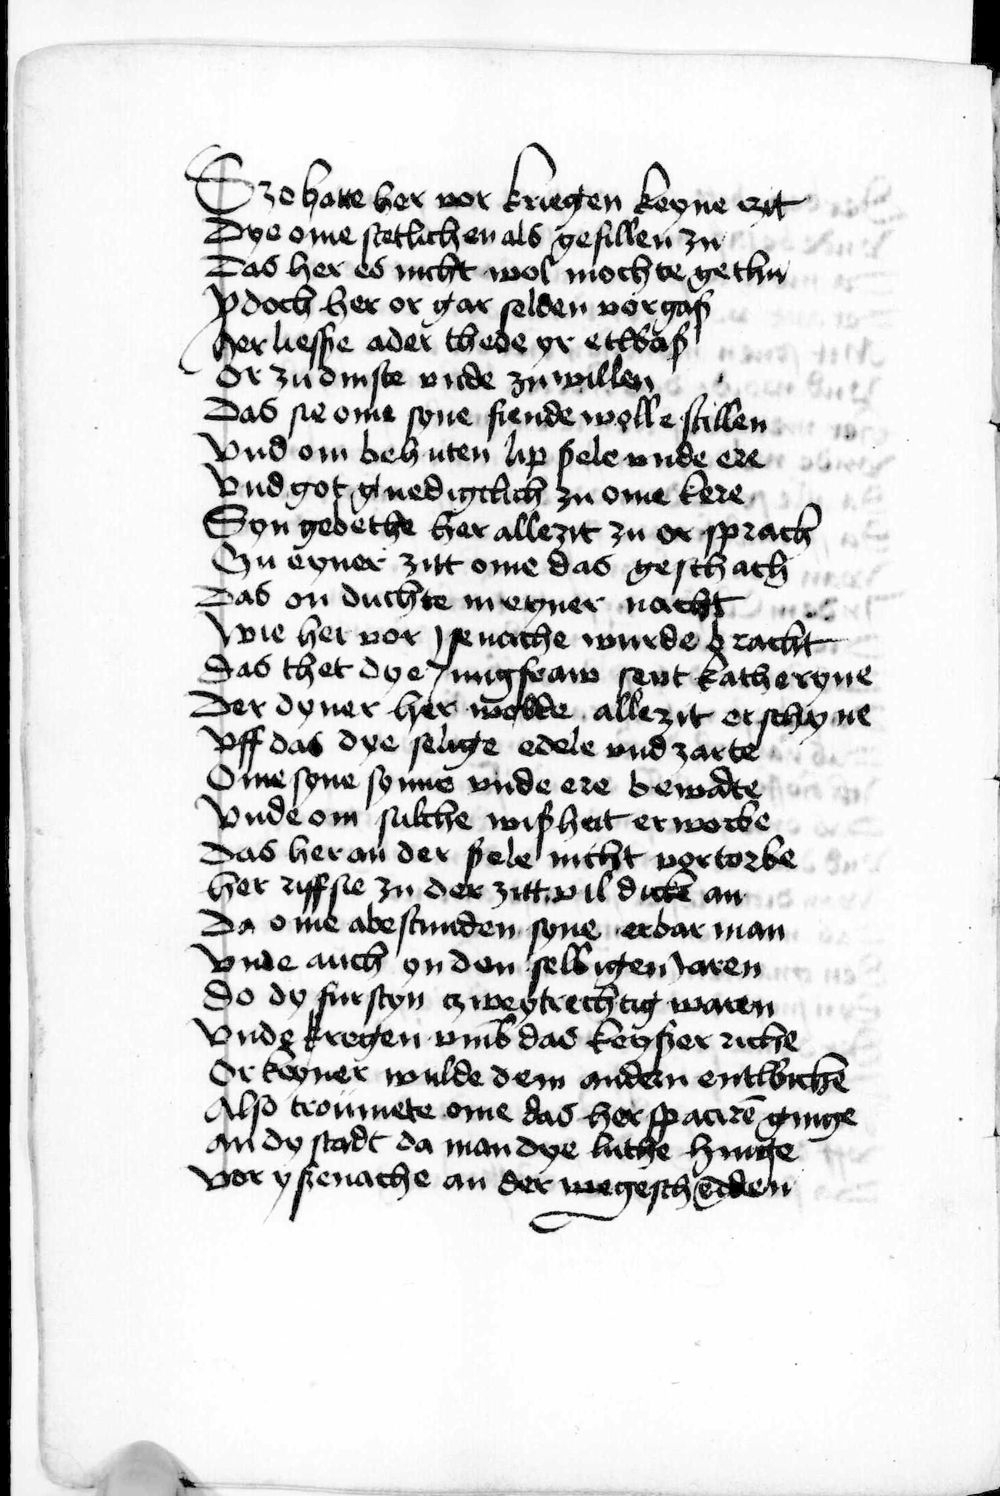 Szo hatte her vor kriegen keyne czit
Dye ome stetlichen als gefillen zu
Das her es nicht wol mochte gethu
ydoch her or gar selden vorgaß
her liesße ader thede yr etwaß
Or zu dinste vnde zu willen
Das sie ome syne fiende wolle stillen
Vnd om behuten lip sele vnde ere
Vnd got gnediglich zu ome kere
Syn gebethe her allezit zu or sprach
Zu eyner zitt ome das geschach
Das on duchte in eyner nacht
Wie her vor ysenache wurde bracht
das thet dye Jungfraw sent katheryne
Der dyner her wolde allezit erschyne
Vff das dye selige edele vnd zarte
Ome syne synne vnde ere bewarte
Vnde om sulche wißheit erworbe
Das her an der sele nicht vortorbe
her riff sie zu der zitt vil dicke an
Da ome abestunden syne erbar man
Vnde auch yn den selbigen Jaren
do dy furstyn czweytrechtig waren
Vnde kregen vmb das keyßer riche
Or keyner wulde dem andern entwichē
Also troumete ome das her spacirē ginge
an dy stadt da man dye luthe hinge
Vor yßenache an der wegescheiden